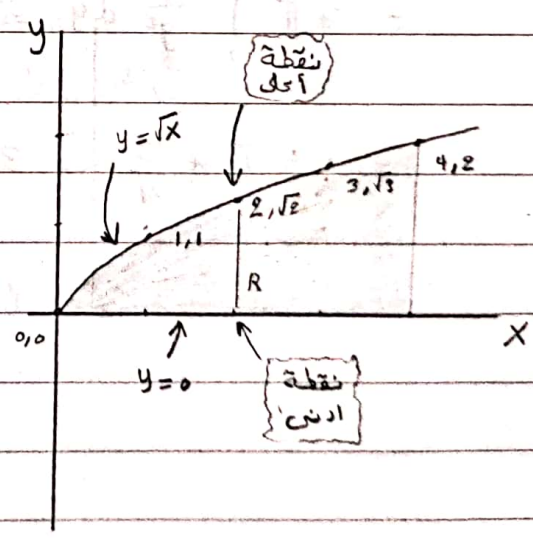 y
نقطة
أعلى
y=√x
4,2
3,√3
2,√2
1,1
R
0,0
x
y=0
نقطة
ادنى